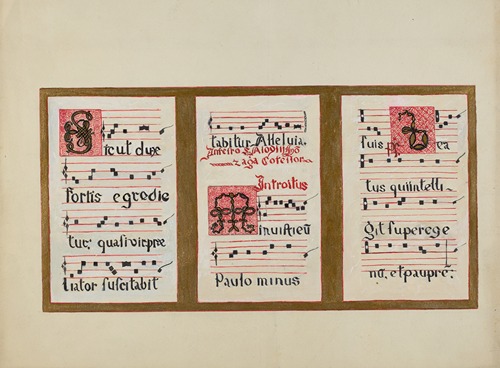 Sicut dux
fortis egredie
tur; quasi vir pre
liator suscitabit
tabitur Alleluia.
Introitus
Minuisti eū
Paulo minus
suis ps Bea
tus qui intelli-
git super ege
nū. et pauprē.